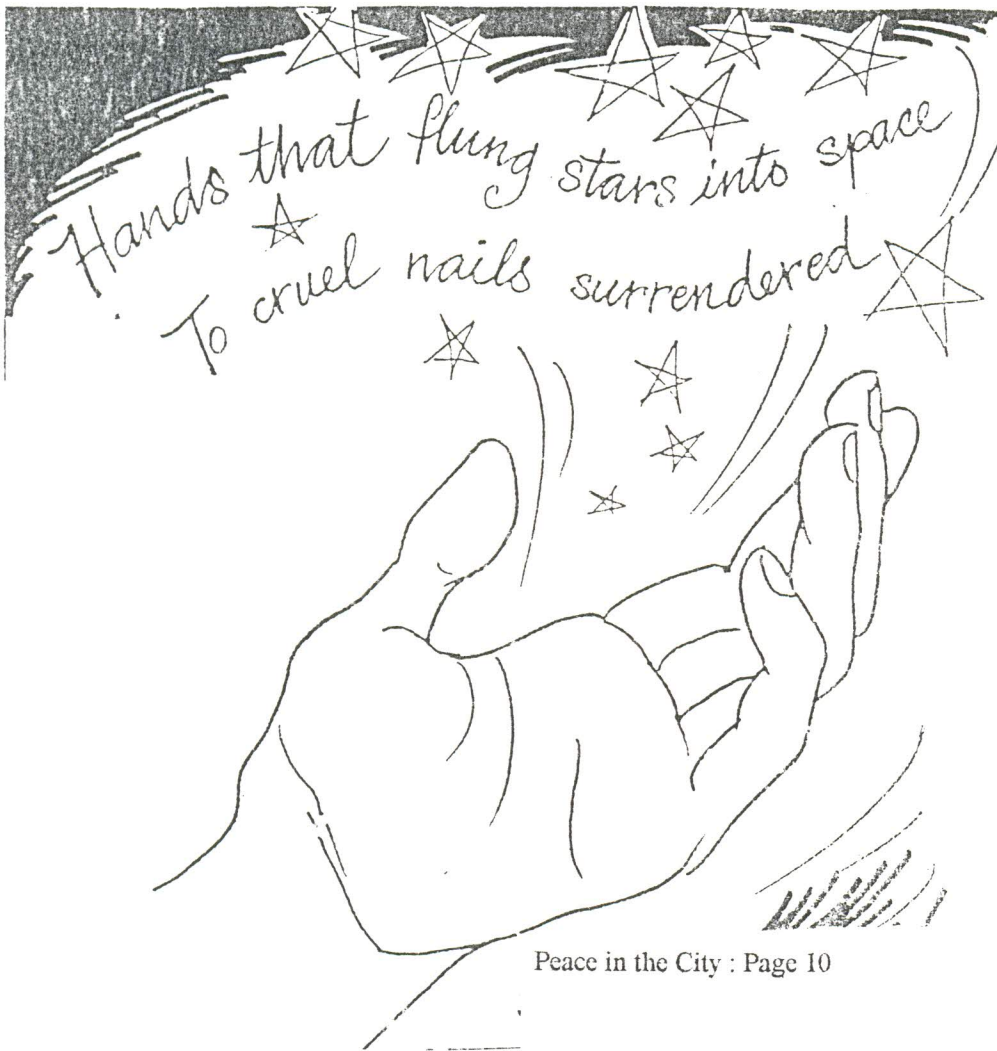 Hands that flung stars into space
To cruel nails surrendered
Peace in the City : Page 10